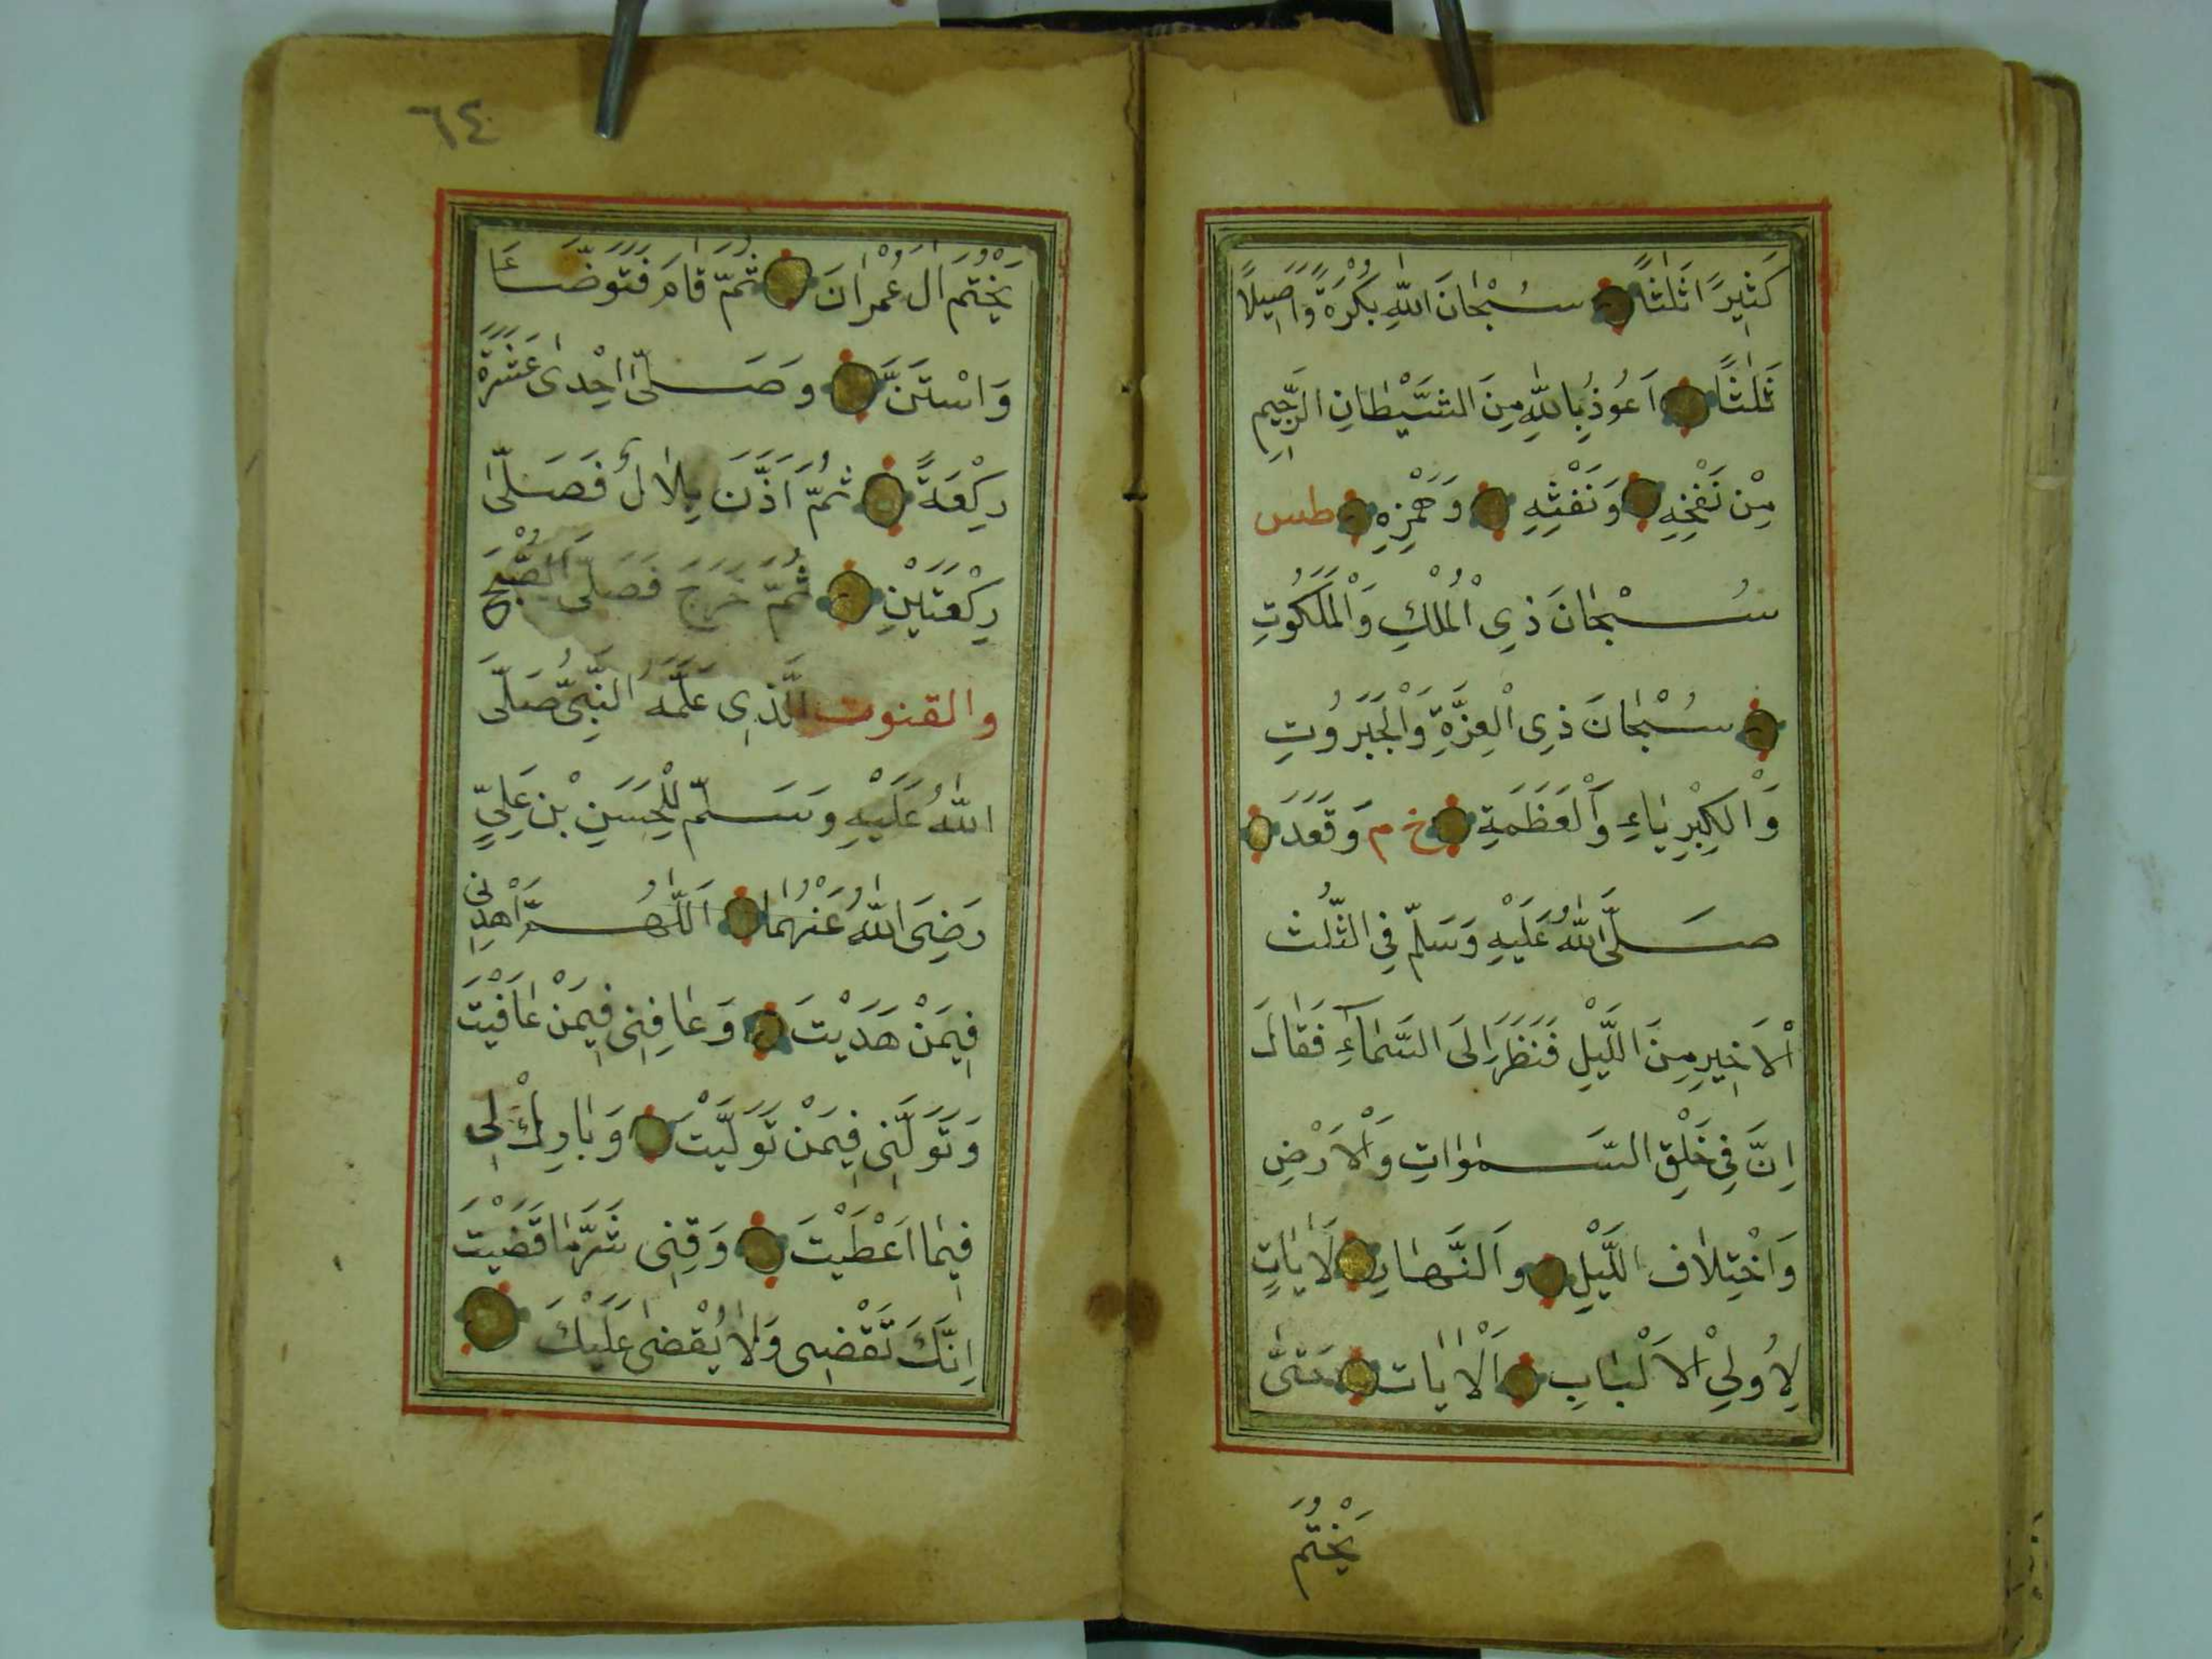 كَثِيرًا ثَلٰثًا سُبْحَانَ اللّٰهِ بُكْرَةً وَاَصِيلًا
ثَلٰثًا اَعُوذُ بِاللّٰهِ مِنَ الشَّيْطَانِ الرَّجِيمِ
مِنْ نَفْخِهِ وَنَفْثِهِ وَهَمْزِهِ طس
سُبْحَانَ ذِى الْمُلْكِ وَالْمَلَكُوتِ
سُبْحَانَ ذِى الْعِزَّةِ وَالْجَبَرُوتِ
وَالْكِبْرِيَاءِ وَالْعَظَمَةِ خ م وَقَعَدَ
صَلَّى اللّٰهُ عَلَيْهِ وَسَلَّمَ فِى الثُّلُث
الْاَخِيرِ مِنَ اللَّيْلِ فَنَظَرَ اِلَى السَّمَآءِ فَقَالَ
اِنَّ فِى خَلْقِ السَّمٰوَاتِ وَالْاَرْضِ
وَاخْتِلَاف اللَّيْلِ وَالنَّهَارِ لَاٰيَاتٍ
لِاُولِىْ الْاَلْبَابِ اَلْاٰيَات حَتّٰى
يَخْتُم
٦٤
يَخْتُمَ اٰلَ عُمْرَانَ ثُمَّ قَامَ فَتَوَضَّاَ
وَاسْتَنَّ وَصَلّٰى اِحْدٰى عَشَرَةَ
رَكْعَةً ثُمَّ اَذَّنَ بِلَالٌ فَصَلّٰى
رَكْعَتَيْنِ ثُمَّ خَرَجَ فَصَلَّى الصُّبْحَ
والقنوت الَّذِى عَلَّمَهُ النَّبِىُّ صَلَّى
اللّٰهُ عَلَيْهِ وَسَلَّمَ لِلْحَسَنِ بْنِ عَلِىٍّ
رَضِىَ اللّٰهُ عَنْهُمَا اَللّٰهُمَّ اهْدِنِى
فِيمَنْ هَدَيْتَ وَعَافِنِى فِيمَنْ عَافَيْتَ
وَتَوَلَّنِى فِيمَنْ تَوَلَّيْتَ وَبَارِكْ لِى
فِيمَا اَعْطَيْتَ وَقِنِى شَرَّ مَا قَضَيْتَ
اِنَّكَ تَقْضِى وَلَا يُقْضٰى عَلَيْكَ